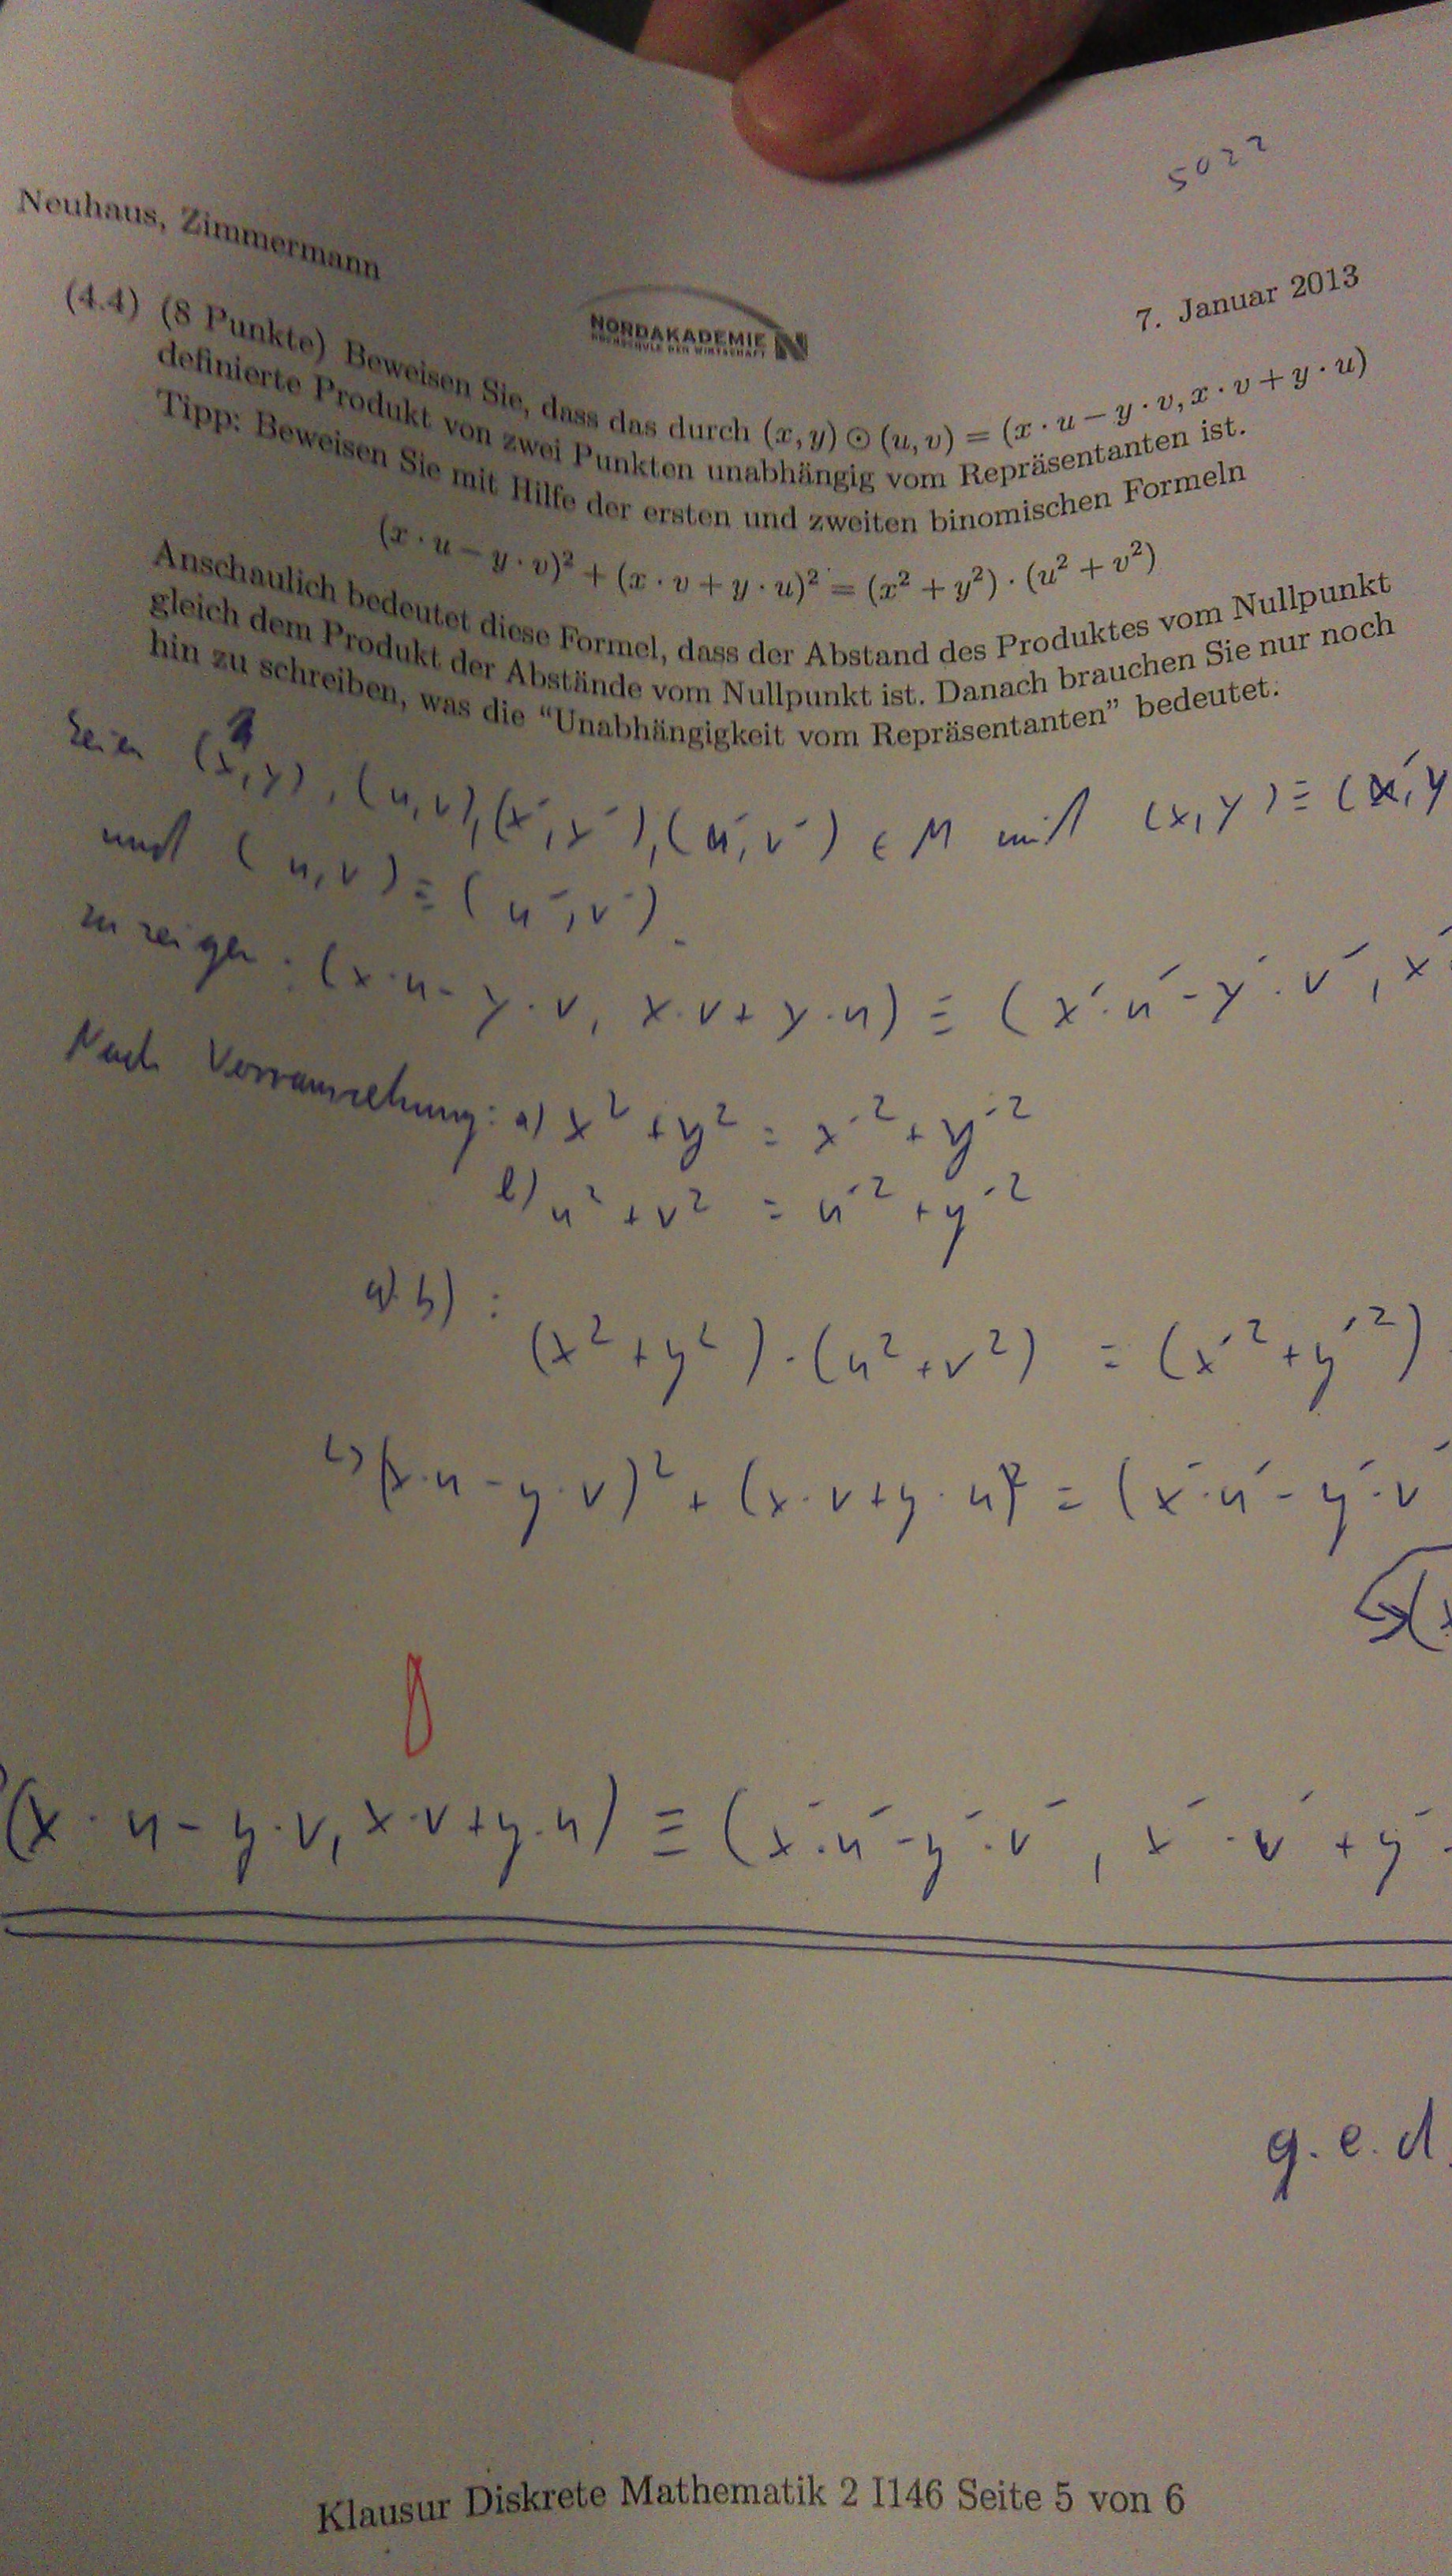 5022
Neuhaus, Zimmermann
7. Januar 2013
NORDAKADEMIE N
HOCHSCHULE DER WIRTSCHAFT
(4.4) (8 Punkte) Beweisen Sie, dass das durch (x, y) ⊙ (u, v) = (x · u − y · v, x · v + y · u)
definierte Produkt von zwei Punkten unabhängig vom Repräsentanten ist.
Tipp: Beweisen Sie mit Hilfe der ersten und zweiten binomischen Formeln
(x · u − y · v)² + (x · v + y · u)² = (x² + y²) · (u² + v²)
Anschaulich bedeutet diese Formel, dass der Abstand des Produktes vom Nullpunkt
gleich dem Produkt der Abstände vom Nullpunkt ist. Danach brauchen Sie nur noch
hin zu schreiben, was die “Unabhängigkeit vom Repräsentanten” bedeutet.
Seien (x, y), (u, v), (x´, y´), (u´, v´) ∈ M mit (x, y) ≡ (x´, y
und (u, v) ≡ (u´, v´).
zu zeigen: (x·u − y·v, x·v + y·u) ≡ (x´·u´ − y´·v´, x´
Nach Vorraussetzung: a) x² + y² = x´² + y´²
b) u² + v² = u´² + y´²
a)·b) :
(x² + y²)·(u² + v²) = (x´² + y´²) ·
(x·u − y·v)² + (x·v + y·u)² = (x´·u´ − y´·v´
(x
8
(x·u − y·v, x·v + y·u) ≡ (x´·u´ − y´·v´, x´·v´ + y´·
q.e.d.
Klausur Diskrete Mathematik 2 I146 Seite 5 von 6